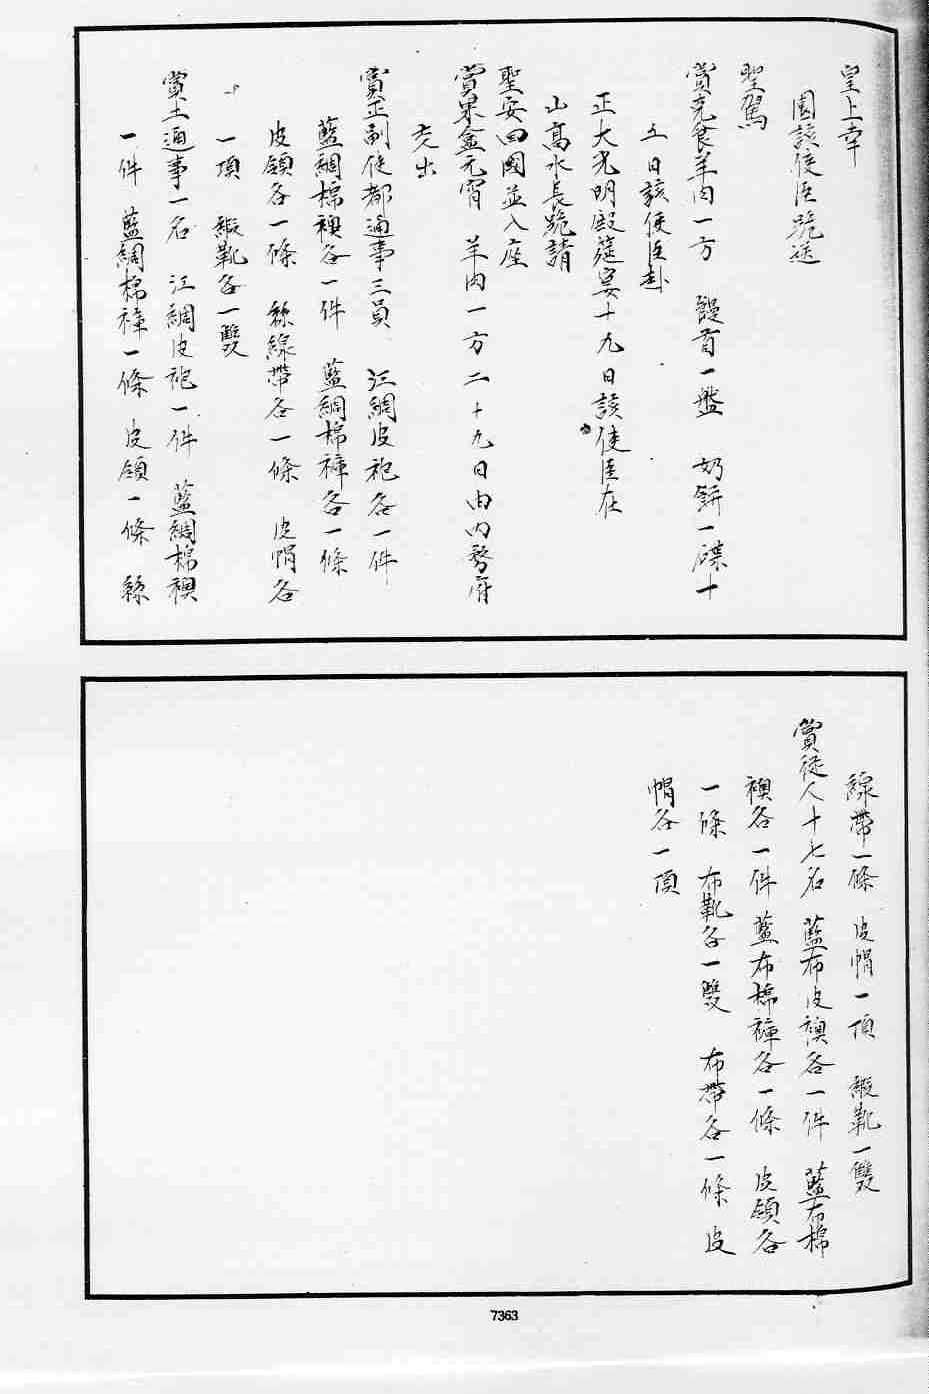 皇上幸
園該使臣跪送
聖駕
賞克食羊肉一方 饅首一盤 奶餅一碟十
五日該使臣赴
正大光明殿筵宴十九日該使臣在
山高水長跪請
聖安回國並入座
賞果盒元宵 羊肉一方二十九日由內務府
交出
賞正副使都通事三員 江綢皮袍各一件
藍綢棉襖各一件 藍綢棉褲各一條
皮領各一條 絲線帶各一條 皮帽各
一頂 緞靴各一雙
賞土通事一名 江綢皮袍一件 藍綢棉襖
一件 藍綢棉褲一條 皮領一條 絲
線帶一條 皮帽一頂 緞靴一雙
賞從人十七名 藍布皮襖各一件 藍布棉
襖各一件 藍布棉褲各一條 皮領各
一條 布靴各一雙 布帶各一條 皮
帽各一頂
7363